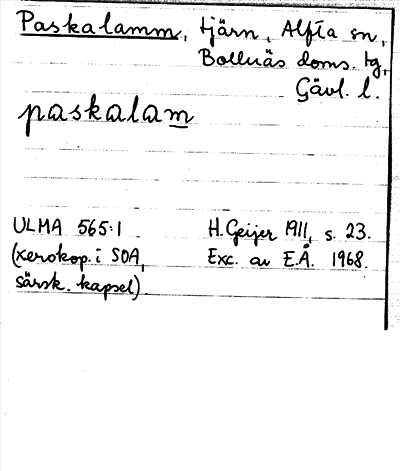 Paskalamm, tjärn, Alfta sn,
Bollnäs doms. tg,
Gävl. l.
paskalam
ULMA 565:1 H. Geijer 1911, s. 23.
(xerokop. i SOA, Exc. av E.Å. 1968.
särsk. kapsel)